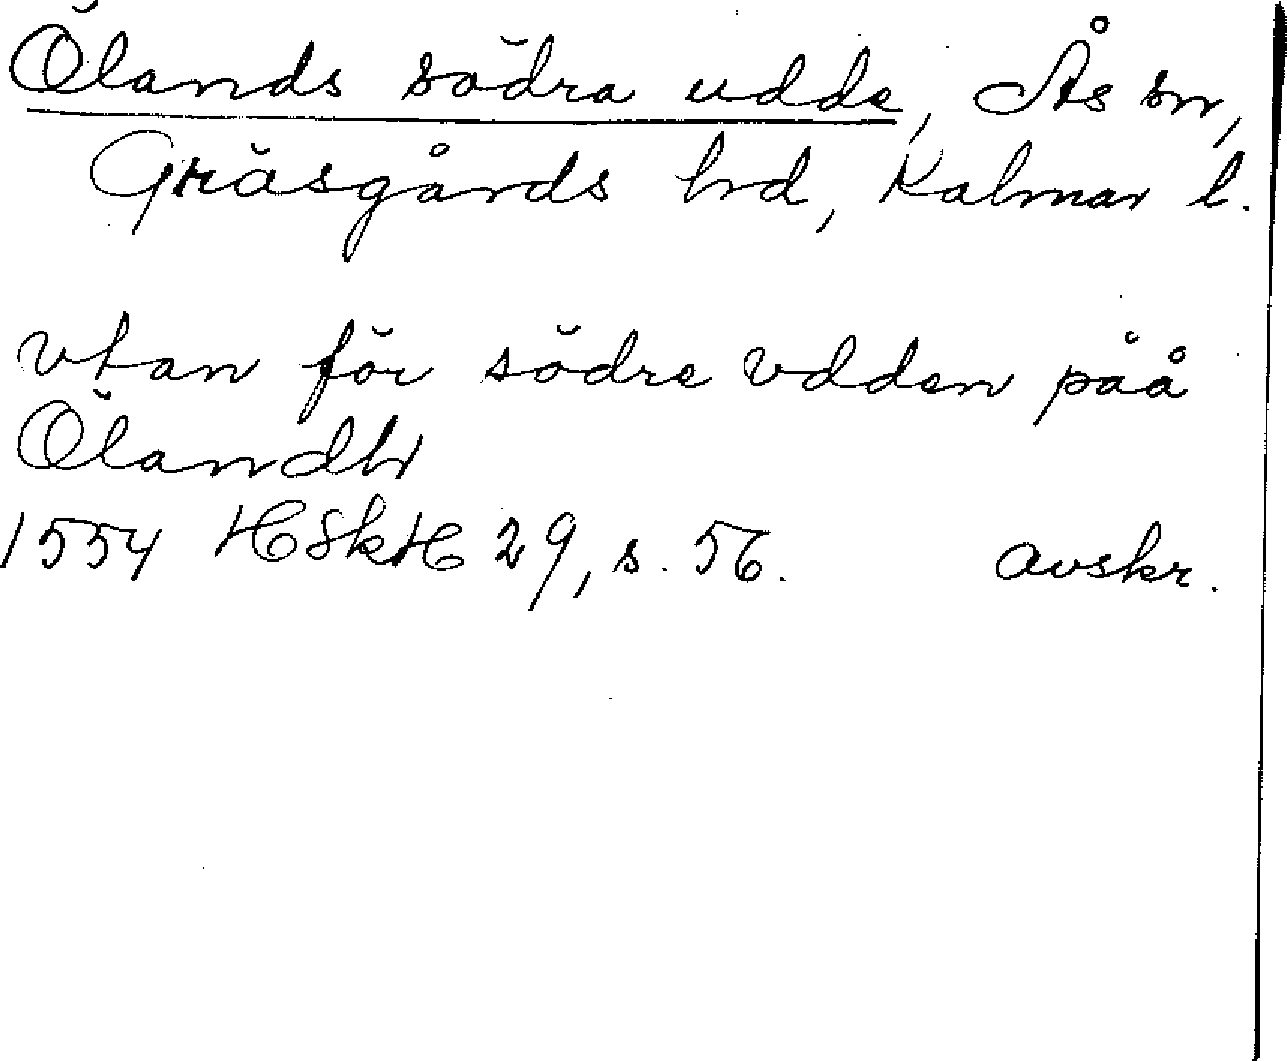 Ölands södra udde, Ås sn,
Gräsgårds hrd, Kalmar l.
vtan för södre vdden påå
Ölandh
1554 HSkH 29, s. 56. avskr.